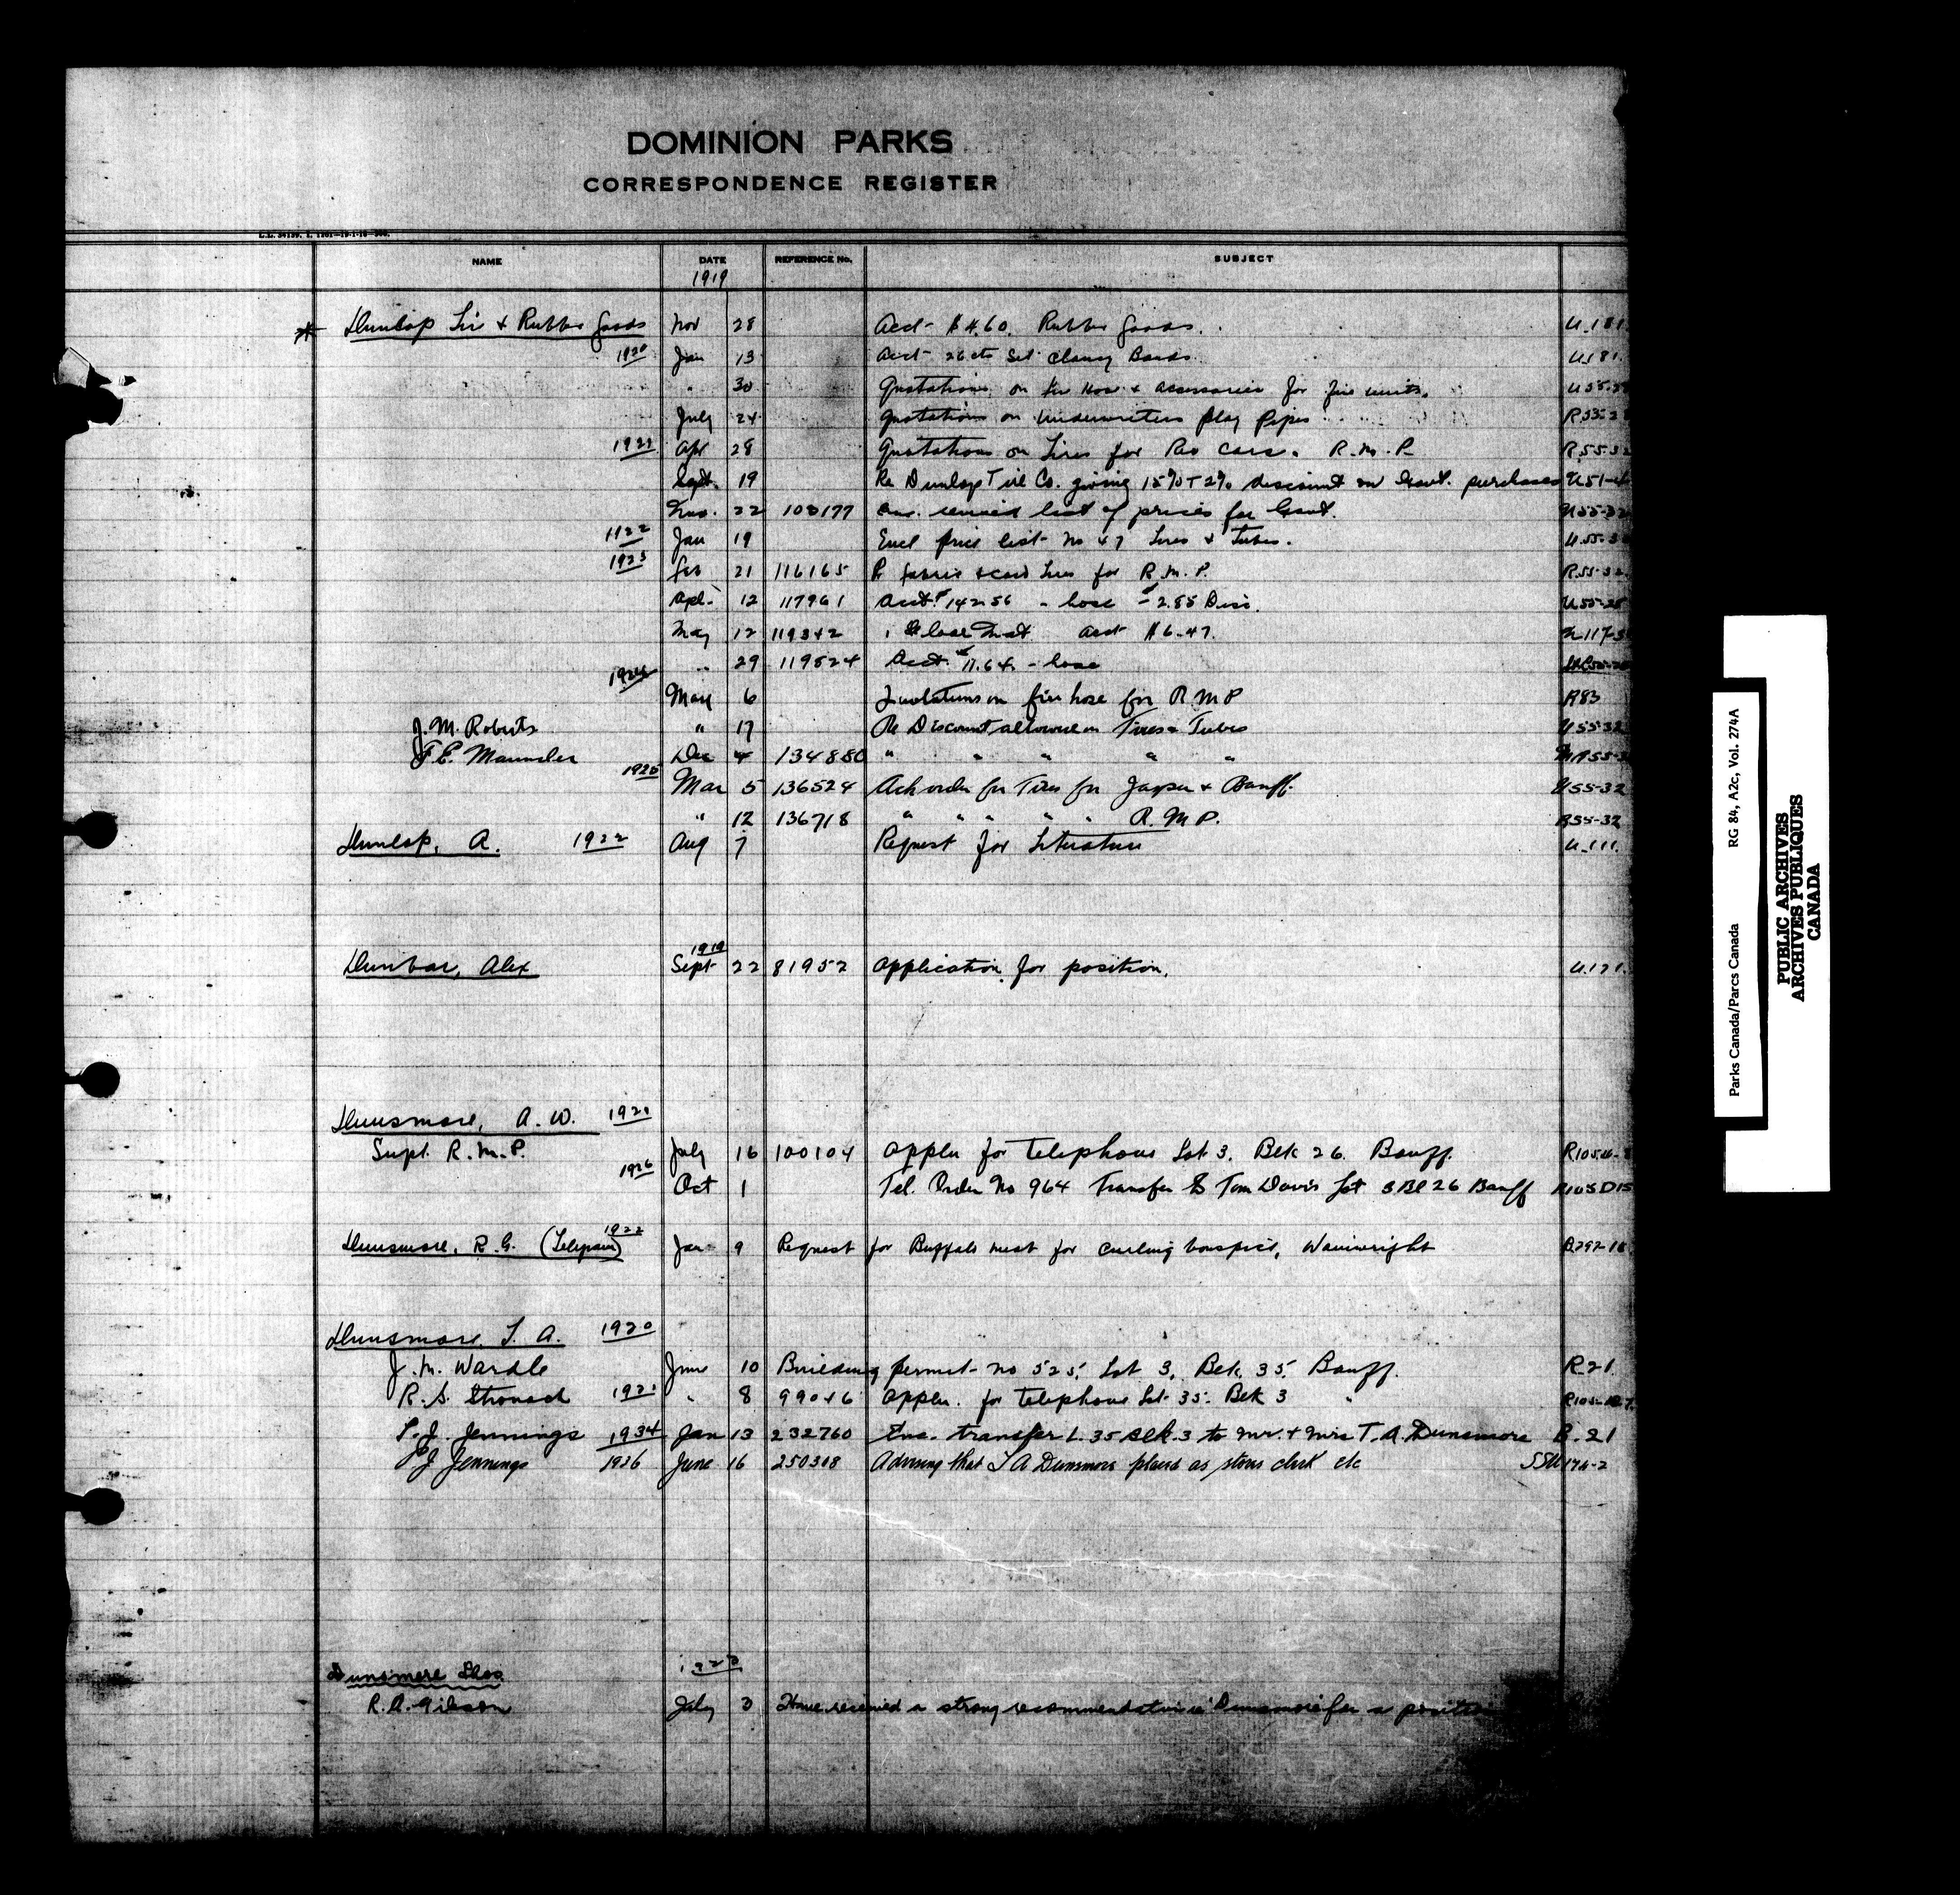 DOMINION PARKS
CORRESPONDENCE REGISTER
NAME DATE REFERENCE No. SUBJECT
1919
Dunlop Tire & Rubber Goods Nov 28 Acct- $4.60. Rubber Goods. U.181
1920 Jan 13 Acct- 26 cts Set Bands U.181.
" 30 Quotations on fire Hose & accessories for fire units.
July 24 Quotations on Underwriters play Pipes
1921 Apr 28 Quotations on Tires for Reo Cars. R.M.P. R.55-32
Sept. 19 Re Dunlop Tire Co. giving 15% + 2% discount on Govt. purchases
Nov. 22 103177 Enc. revised list of prices for Govt.
1922 Jan 19 Encl price list- No 47 Tires & Tubes.
1923 Feb 21 116165 Re fabric & cord Tires for R.M.P. R55-32.
Apl. 12 117961 Acct. $142.56 - hose - $2.85 Disc.
May 12 119342 acct $6.47.
" 29 119524 Acct. $11.64. - hose
1924 May 6 Quotations on fire hose for R M P R83
J. M. Roberts " 17 Re Discount allowed on Tires & Tubes U55-32
F. E. Maunder Dec 4 134880 " " " " "
1925 Mar 5 136524 Ack order for Tires for Jasper & Banff. U55-32
" 12 136718 " " " " R.M.P. R55-32
Dunlop, A. 1922 Aug 7 Request for Literature U.111.
1919
Dunbar, Alex Sept 22 81952 Application for position. U.121.
Dunsmore, A. W. 1921
Supt. R.M.P. July 16 100104 Applen for telephone Lot 3. Blk 26. Banff.
1926 Oct 1 Tel. Order No 964 Transfer to Tom Davis Lot 3 Bl 26 Banff R105D15
Dunsmore, R. G. 1922 Jan 9 Request for Buffalo meat for curling bonspiel, Wainwright
Dunsmore, T. A. 1920
J. M. Wardle June 10 Building permit- no 525, Lot 3, Blk. 35. Banff. R-21.
R. S. Stronach 1921 " 8 99046 Applen. for telephone Lot 35. Blk 3 "
P. J. Jennings 1934 Jan 13 232760 Enc. transfer L. 35 Blk. 3 to Mr. & Mrs T. A. Dunsmore B.21
P J Jennings 1936 June 16 250318 Advising that T A Dunsmore placed as stores clerk etc
Dunsmore Thos
R. A. Gibson July 3 Have received a strong recommendation re Dunsmore for a position
Parks Canada/Parcs Canada RG 84, A2c, Vol. 274A
PUBLIC ARCHIVES
ARCHIVES PUBLIQUES
CANADA